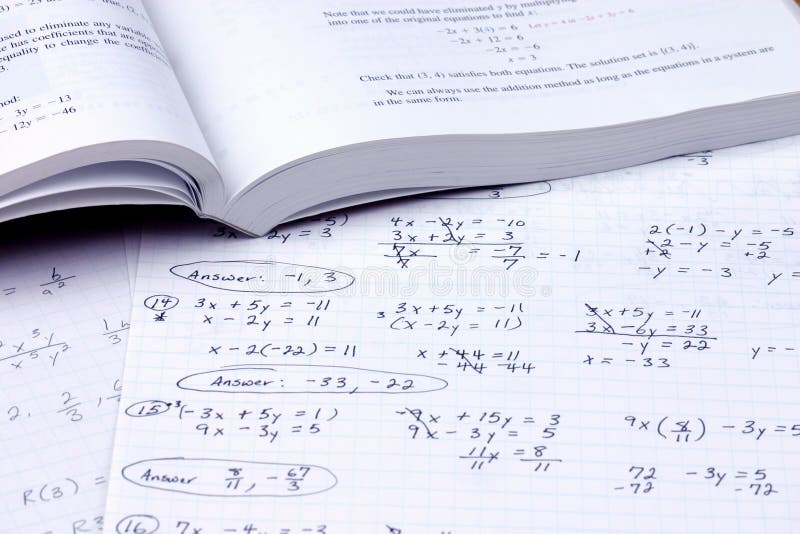 3) = 23 are
used to eliminate any variable
e has coefficients that are opp
equality to change the coefficients
3.
nod:
3y = -13
- 12y = -46
Note that we could have eliminated y by multiplying
into one of the original equations to find x:
-2x + 3(4) = 6
-2x + 12 = 6
-2x = -6
x = 3
Check that (3, 4) satisfies both equations. The solution set is {(3, 4)}.
We can always use the addition method as long as the equations in a system are
in the same form.
-3
3
3x + 2y = 3
4x - 2y = -10
3x + 2y = 3
7x = -7 = -1
7 7
Answer: -1, 3
2(-1) - y = -5
-2 - y = -5
+2 +2
-y = -3
14 3x + 5y = -11
* x - 2y = 11
x - 2(-22) = 11
3x + 5y = -11
3 (x - 2y = 11)
x + 44 = 11
- 44 -44
3x + 5y = -11
3x - 6y = 33
-y = 22
x = -33
y = -
Answer: -33, -22
15 3(-3x + 5y = 1)
9x - 3y = 5
-9x + 15y = 3
9x - 3y = 5
11x = 8
11 11
9x(8/11) - 3y = 5
72 - 3y = 5
-72 -72
Answer 8/11, -67/3
16 7x - 4y = -3
= b/a²
x³y
x⁵y²
2. 2/3, 6
R(3) =
R
dreamstime